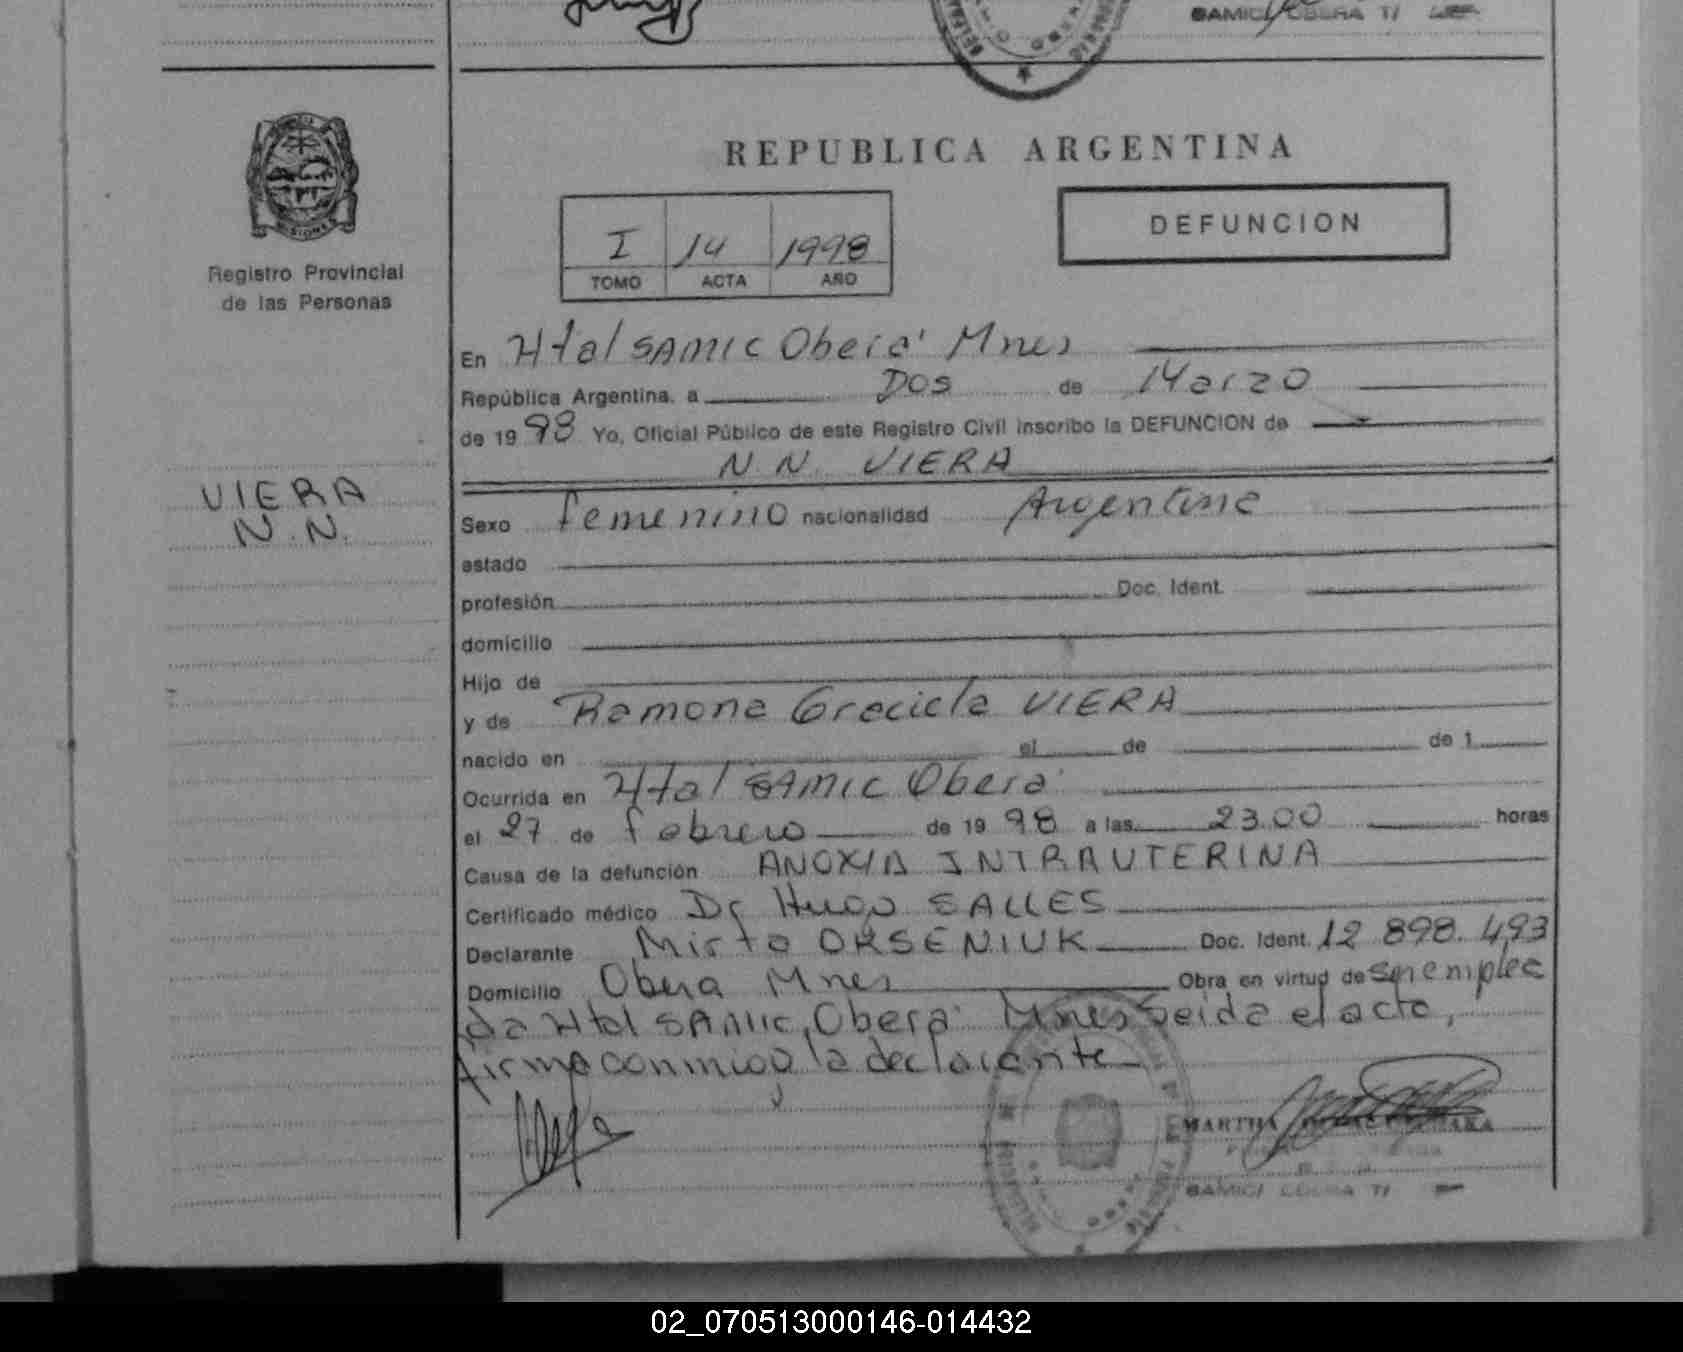 SAMIC OBERA
REPUBLICA ARGENTINA
I 14 1998
TOMO ACTA AÑO
DEFUNCION
MISIONES
Registro Provincial
de las Personas
VIERA
N.N.
En Htal SAMIC Oberá Mnes
República Argentina, a Dos de Marzo
de 1998 Yo, Oficial Público de este Registro Civil inscribo la DEFUNCION de
N.N. VIERA
Sexo femenino nacionalidad Argentina
estado
profesión Doc. Ident.
domicilio
Hijo de
y de Ramona Graciela VIERA
nacido en el de de 1
Ocurrida en Htal SAMIC Oberá
el 27 de febrero de 1998 a las 23.00 horas
Causa de la defunción ANOXIA INTRAUTERINA
Certificado médico Dr Hugo SALLES
Declarante Mirta ORSENIUK Doc. Ident. 12 898.493
Domicilio Obera Mnes Obra en virtud de ser emplea
da Htal SAMIC, Oberá Mnes Leida el acta,
firma conmigo la declarante
MARTHA
02_070513000146-014432